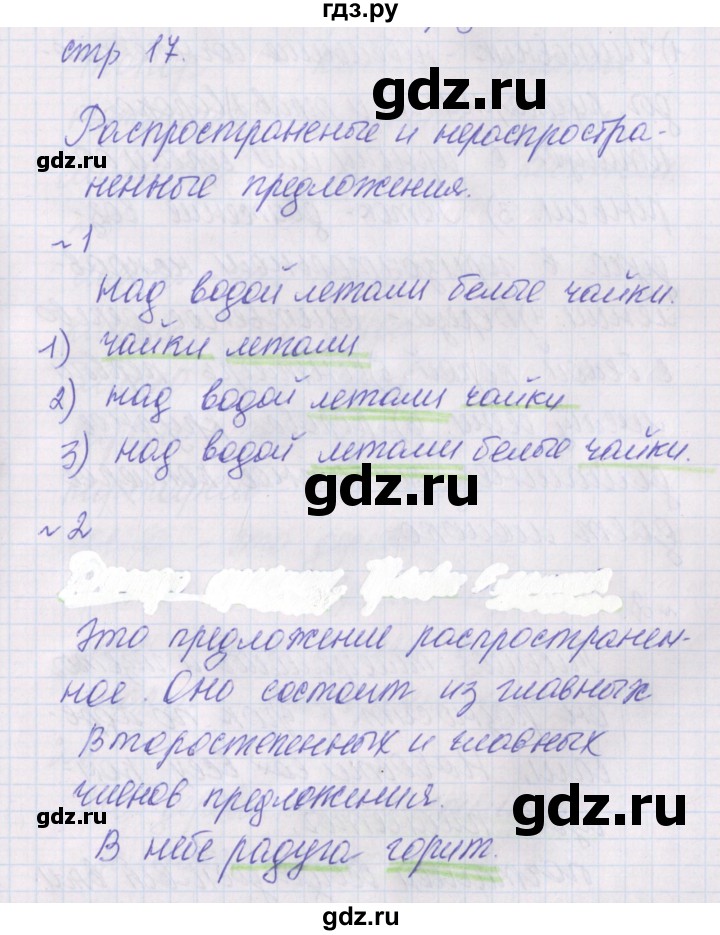 гдз.ру
стр 17.
gdz.ru
Распространеные и нераспростра-
gdz.ru
ненные предложения.
~1
gdz.ru
над водой летали белые чайки.
1) чайки летали
2) над водой летали чайки
3) над водой летали белые чайки.
gdz.ru
~2
Это предложение распространен-
ное. Оно состоит из главных
Второстепенных и главных
членов предложения.
gdz.ru
gdz.ru
В небе радуга горит.
gdz.ru